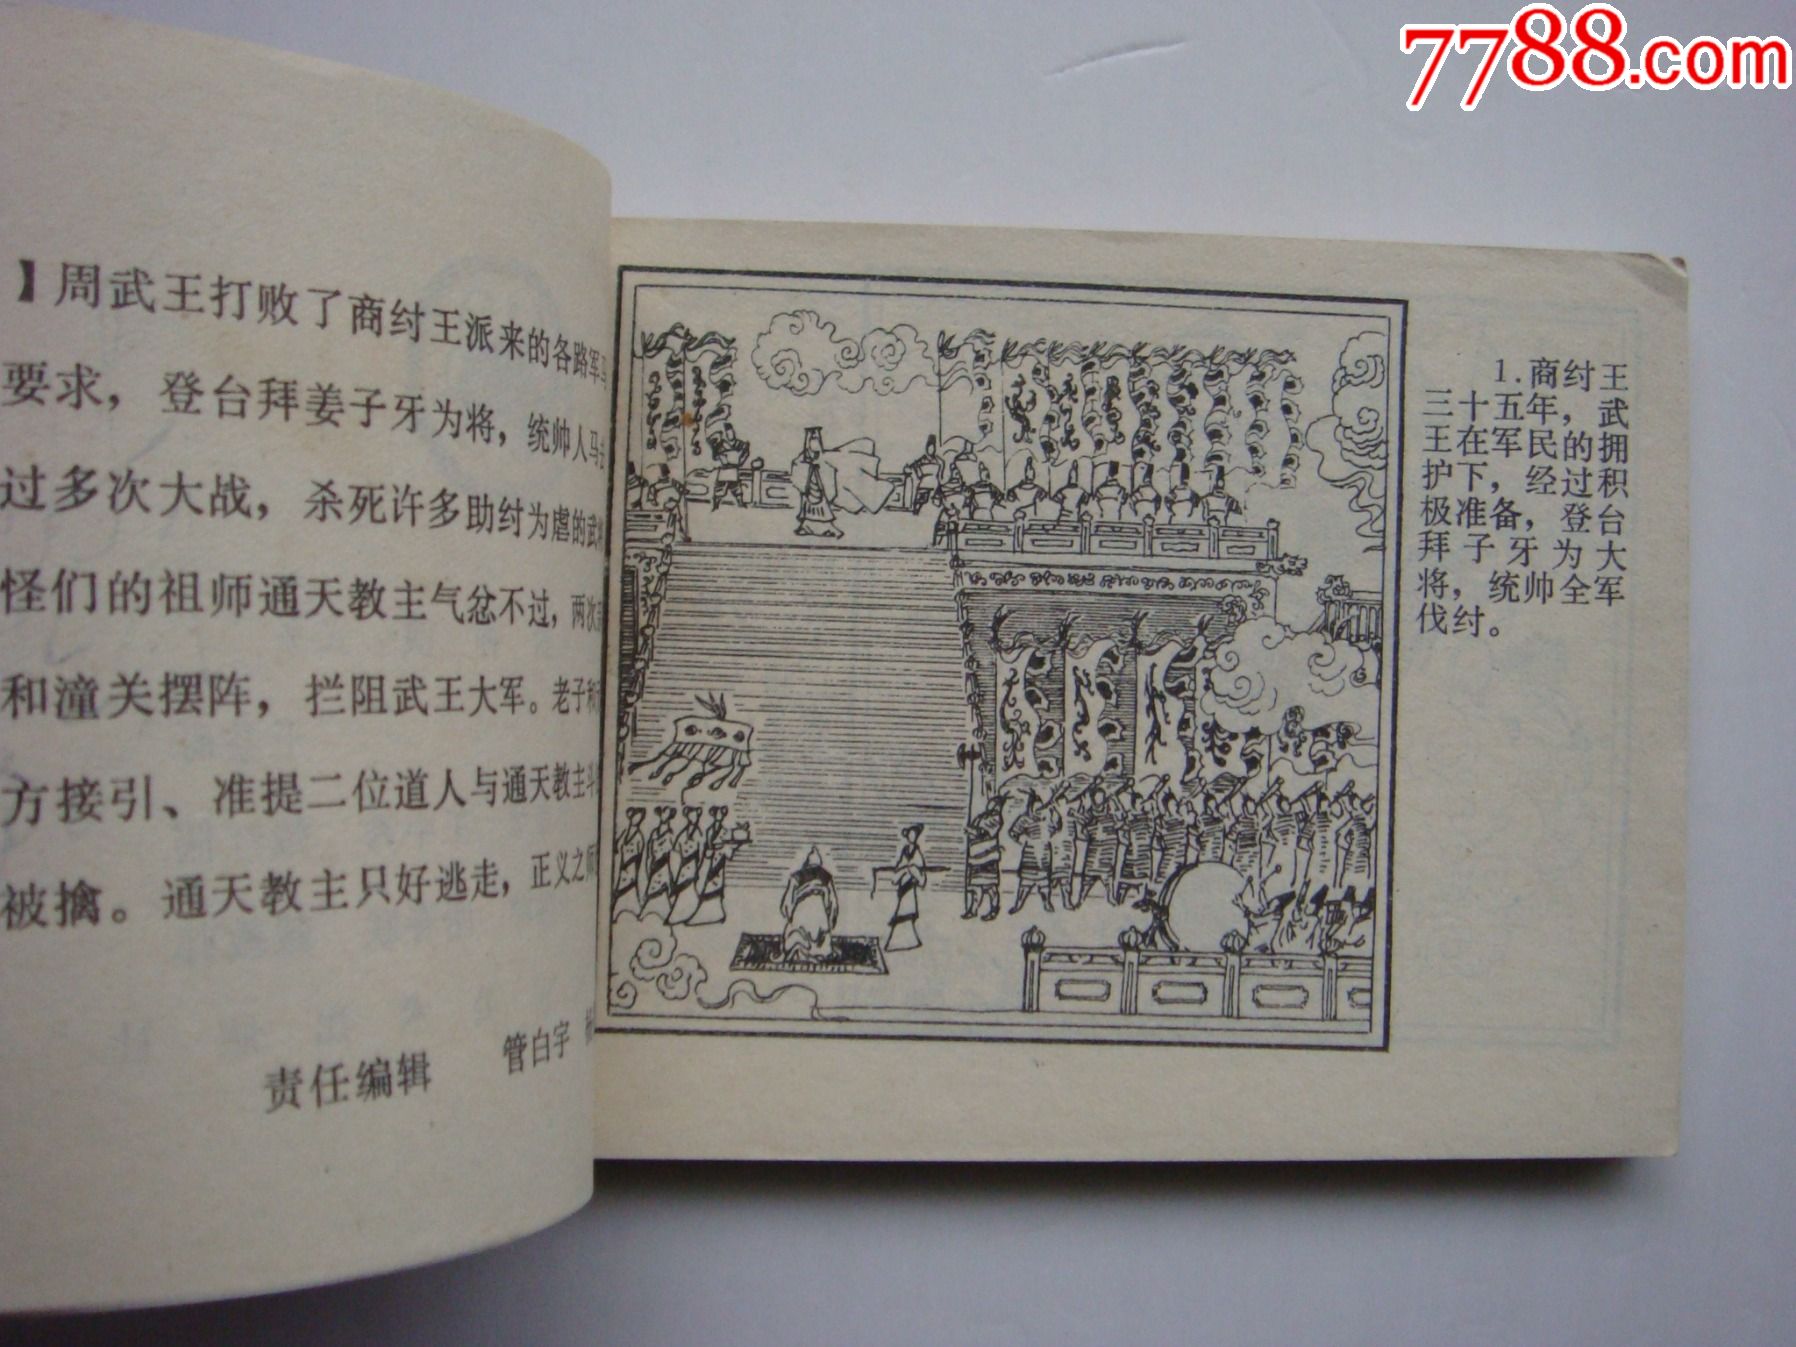 7788.com
】周武王打败了商纣王派来的各路军马
要求，登台拜姜子牙为将，统帅人马
过多次大战，杀死许多助纣为虐的武
怪们的祖师通天教主气忿不过，两次
和潼关摆阵，拦阻武王大军。老子和
方接引、准提二位道人与通天教主斗
被擒。通天教主只好逃走，正义之师
责任编辑 管白宇
1.商纣王
三十五年，武
王在军民的拥
护下，经过积
极准备，登台
拜子牙为大
将，统帅全军
伐纣。